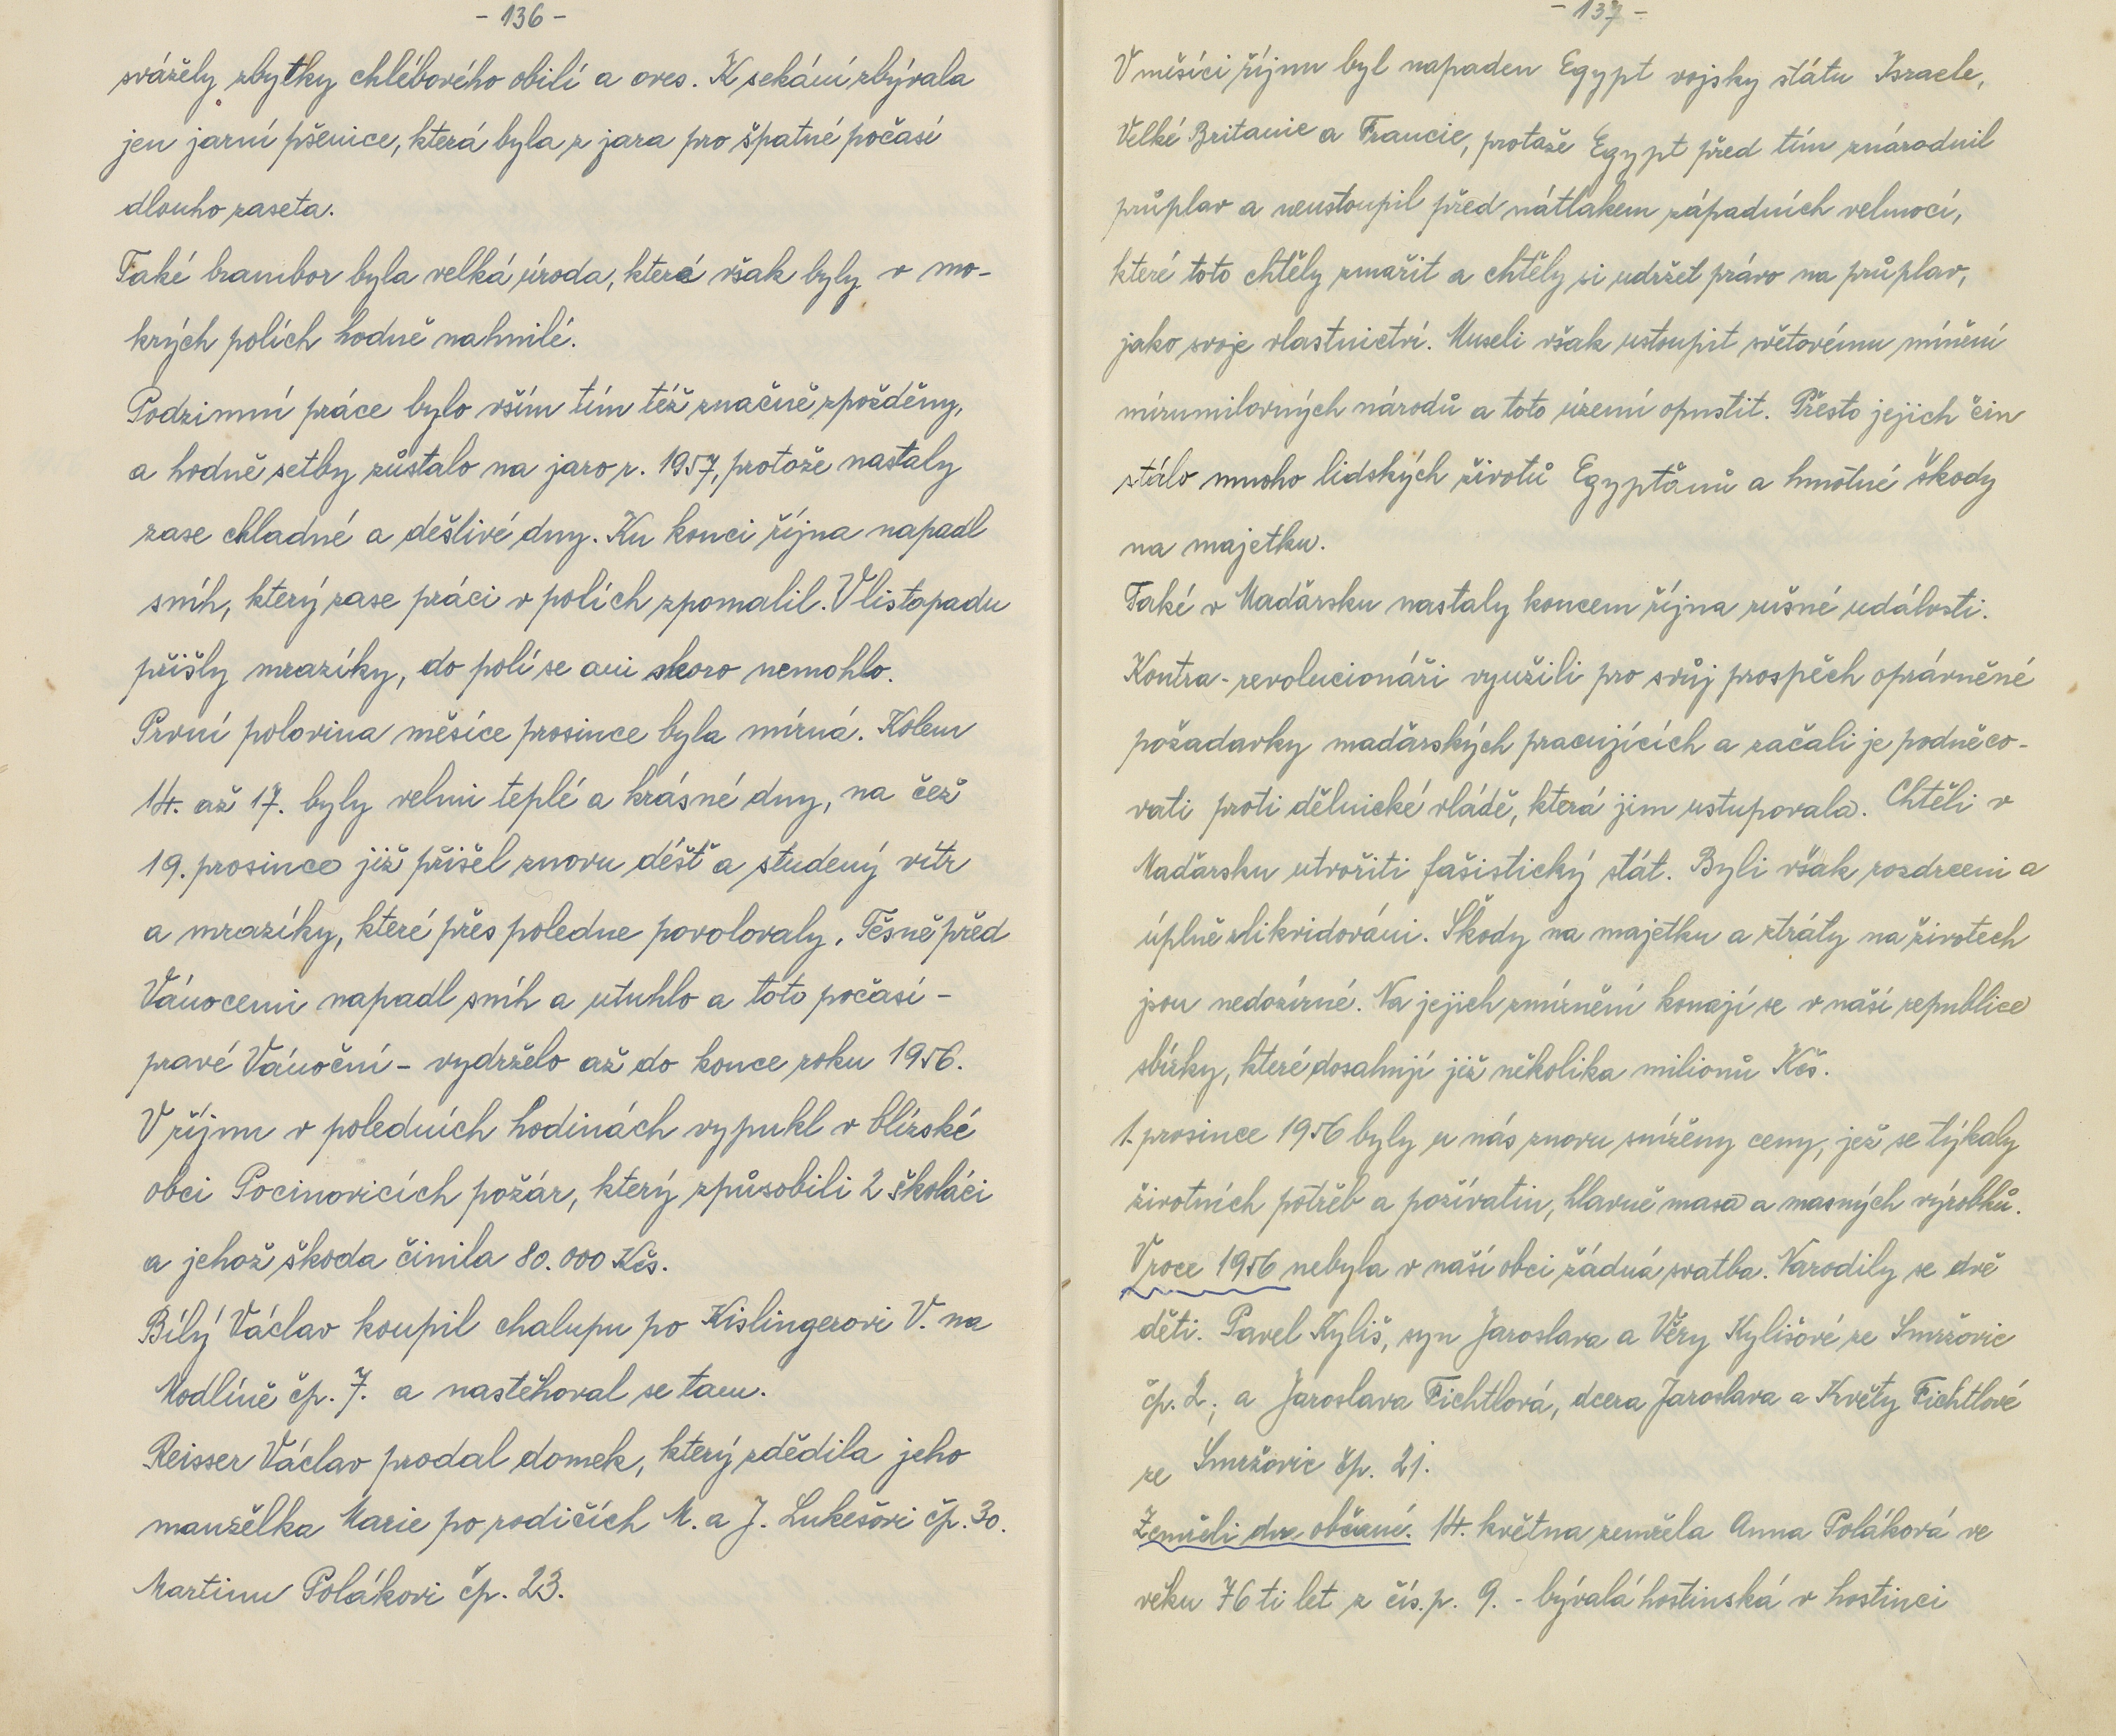 - 136 -
svážely zbytky chlébového obilí a oves. K sekání zbývala
jen jarní pšenice, která byla z jara pro špatné počasí
dlouho zaseta.
Také brambor byla velká úroda, které však byly v mo-
krých polích hodně nahnilé.
Podzimní práce bylo vším tím též značně zpožděny,
a hodně setby zůstalo na jaro r. 1957, protože nastaly
zase chladné a deštivé dny. Ku konci října napadl
sníh, který zase práci v polích zpomalil. V listopadu
přišly mrazíky, do polí se ani skoro nemohlo.
První polovina měsíce prosince byla mírná. Kolem
14. až 17. byly velmi teplé a krásné dny, na čež
19. prosince již přišel znovu déšť a studený vítr
a mrazíky, které přes poledne povolovaly. Těsně před
Vánocemi napadl sníh a utuhlo a toto počasí -
pravé Vánoční - vydrželo až do konce roku 1956.
V říjnu v poledních hodinách vypukl v blízské
obci Pocinovicích požár, který způsobili 2 školáci
a jehož škoda činila 80.000 Kčs.
Bílý Václav koupil chalupu po Kislingerovi V. na
Modlíně čp. 7. a nastěhoval se tam.
Reisser Václav prodal domek, který zdědila jeho
manželka Marie po rodičích M. a J. Lukešovi čp. 30.
Martinu Polákovi čp. 23.
- 137 -
V měsíci říjnu byl napaden Egypt vojsky státu Israele,
Velké Britanie a Francie, protože Egypt před tím znárodnil
průplav a neustoupil před nátlakem západních velmocí,
které toto chtěly zmařit a chtěly si udržet právo na průplav,
jako svoje vlastnictví. Museli však ustoupit světovému mínění
mírumilovných národů a toto území opustit. Přesto jejich čin
stálo mnoho lidských životů Egyptanů a hmotné škody
na majetku.
Také v Maďarsku nastaly koncem října rušné události.
Kontra-revolucionáři využili pro svůj prospěch oprávněné
požadavky maďarských pracujících a začali je podněco-
vati proti dělnické vládě, která jim ustupovala. Chtěli v
Maďarsku utvořiti fašistický stát. Byli však rozdrceni a
úplně zlikvidováni. Škody na majetku a ztráty na životech
jsou nedozírné. Na jejich zmírnění konají se v naší republice
sbírky, které dosahují již několika milionů Kčs.
1. prosince 1956 byly u nás znovu sníženy ceny, jež se týkaly
životních potřeb a požívatin, hlavně masa a masných výrobků.
V roce 1956 nebyla v naší obci žádná svatba. Narodily se dvě
děti. Pavel Kyliš, syn Jaroslava a Věry Kylišové ze Smržovic
čp. 2, a Jaroslava Fichtlová, dcera Jaroslava a Květy Fichtlové
ze Smržovic čp. 21.
Zemřeli dva občané. 14. května zemřela Anna Poláková ve
věku 76 ti let z čís. p. 9. - bývalá hostinská v hostinci